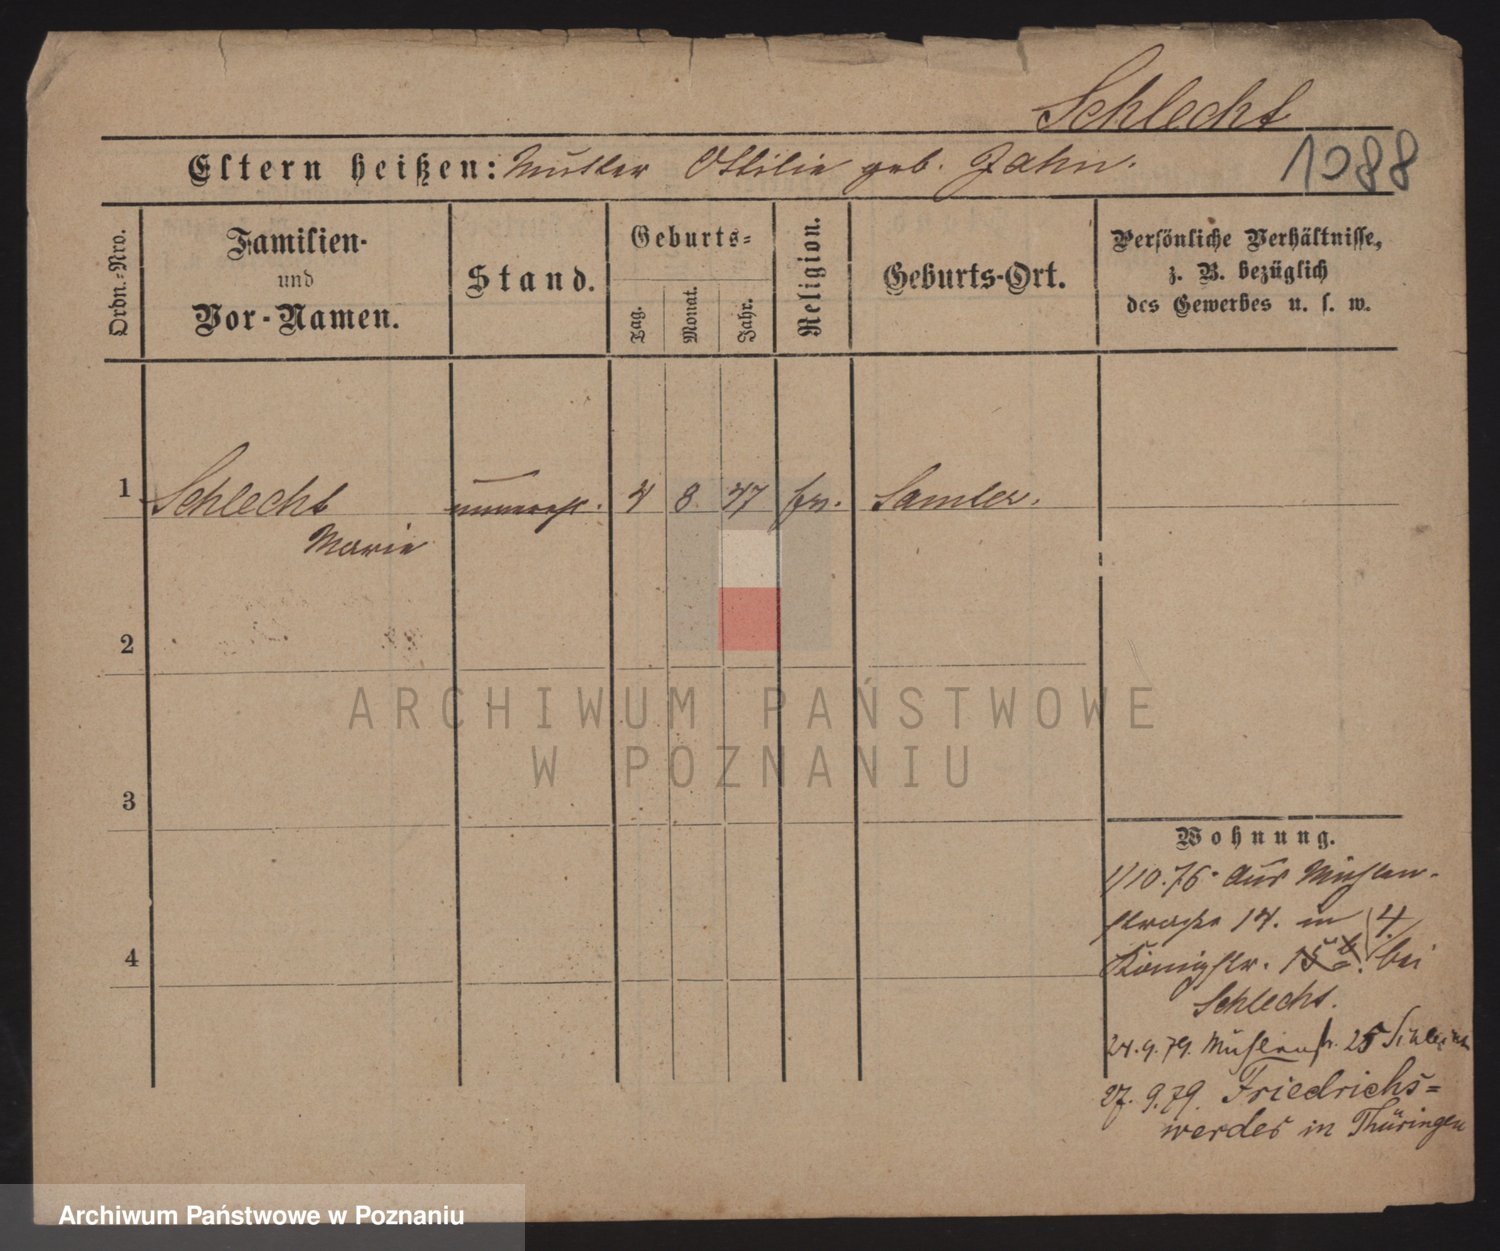 Schlecht
1088
Eltern heißen: Mutter Ottilie geb. Jahn.
Ordn.-Nro.
Familien-
und
Vor-Namen.
Stand.
Geburts-
Tag.
Monat.
Jahr.
Religion.
Geburts-Ort.
Persönliche Verhältnisse,
z. B. bezüglich
des Gewerbes u. s. w.
1 Schlecht unvereh. 4 8 47 ev. Samter.
Marie
2
3
4
ARCHIWUM PAŃSTWOWE
W POZNANIU
Wohnung.
1/10.76. Aus Mühlen-
straße 14. in 4
Königstr. 15 b. bei
Schlecht.
24.9.79. Mühlenstr. 25 Schlecht
27.9.79. Friedrichs=
werder in Thüringen
Archiwum Państwowe w Poznaniu